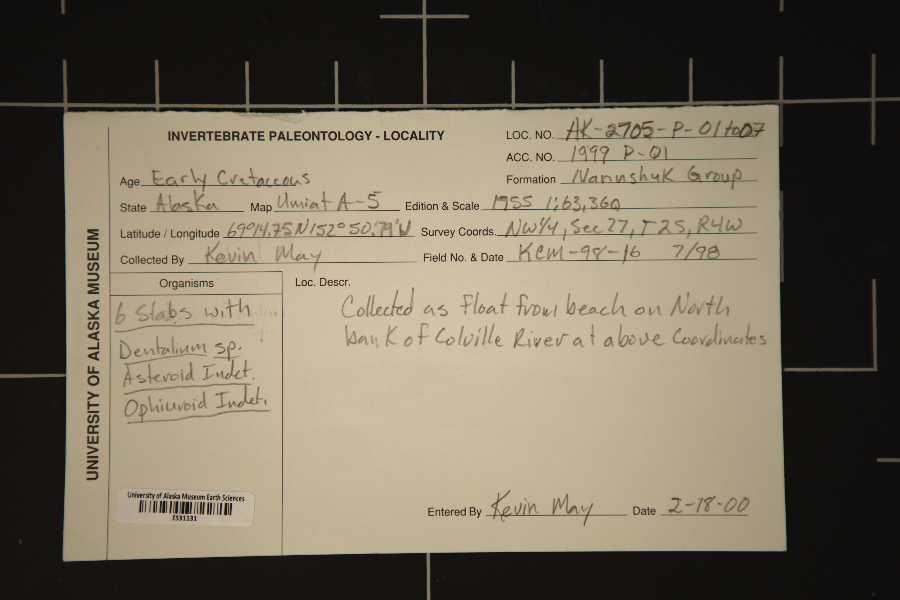 INVERTEBRATE PALEONTOLOGY - LOCALITY
LOC. NO. AK-2705-P-01 to 07
ACC. NO. 1999 P-01
Age Early Cretaceous
Formation Nanushuk Group
State Alaska Map Umiat A-5 Edition & Scale 1955 1:63,360
Latitude / Longitude 69°14.75'N 152°50.79'W Survey Coords. NW1/4, Sec 27, T2S, R4W
Collected By Kevin May Field No. & Date KCM-98-16 7/98
Organisms
Loc. Descr.
6 Slabs with
Dentalium sp.
Asteroid Indet.
Ophiuroid Indet.
Collected as Float from beach on North
bank of Colville River at above Coordinates
UNIVERSITY OF ALASKA MUSEUM
University of Alaska Museum Earth Sciences
ES31131
Entered By Kevin May Date 2-18-00